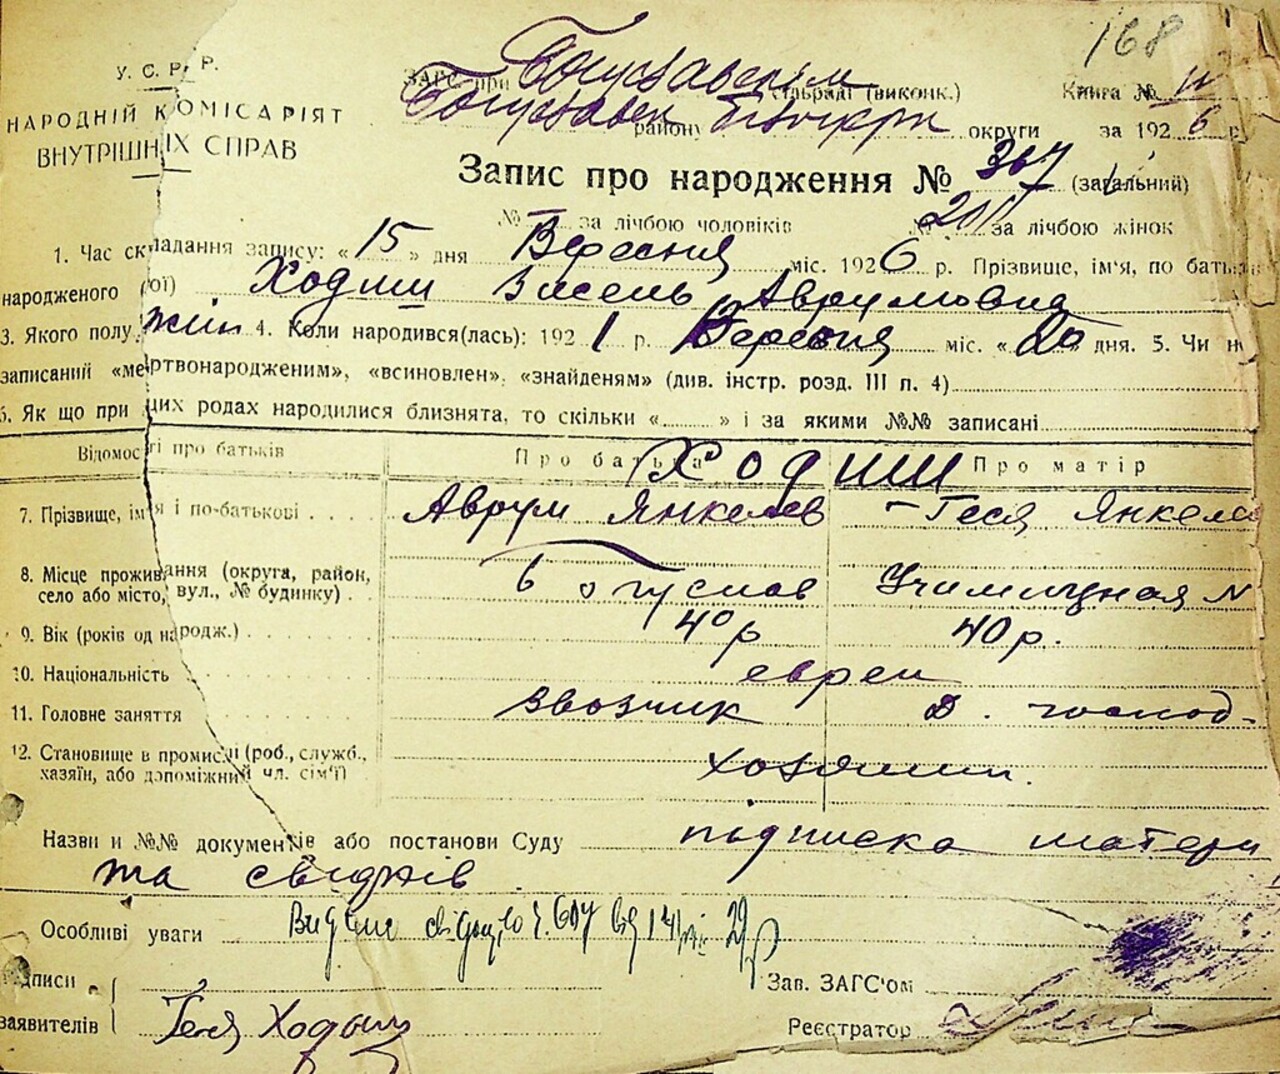 168
У. С. Р. Р.
НАРОДНІЙ КОМІСАРІЯТ
ВНУТРІШНІХ СПРАВ
ЗАГС при Богуславськім сільраді (виконк.)
Книга №
Богуславск району Білоцеркв округи за 1926 р.
Запис про народження № 367 (загальний)
№ за лічбою чоловіків № за лічбою жінок
1. Час складання запису: « 15 » дня Вересня міс. 1926 р. Прізвище, ім'я, по батькові
народженого (ої) Ходиш Аврумовна
3. Якого полу жін 4. Коли народився(лась): 1921 р. Вересня міс. « 20 » дня. 5. Чи не
записаний «мертвонародженим», «всиновлен», «знайденям» (див. інстр. розд. III п. 4)
6. Як що при цих родах народилися близнята, то скільки « » і за якими №№ записані
Відомості про батьків Про батька Про матір
Ходиш
7. Прізвище, ім'я і по-батькові Аврум Янкелев - Геся Янкеле
8. Місце проживання (округа, район, село або місто, вул., № будинку) Богуслав Училищная №
9. Вік (років од народж.) 40 р 40 р.
10. Національність евреи
11. Головне заняття Звозчик Д. господ.
12. Становище в промислі (роб., служб., хазяїн, або допоміжний чл. сім'ї) хозяин.
Назви и №№ документів або постанови Суду підписка матери
та свідків
Особливі уваги Видано свідоц.
Підписи
заявителів Геся Ходыш
Зав. ЗАГС'ом
Реєстратор